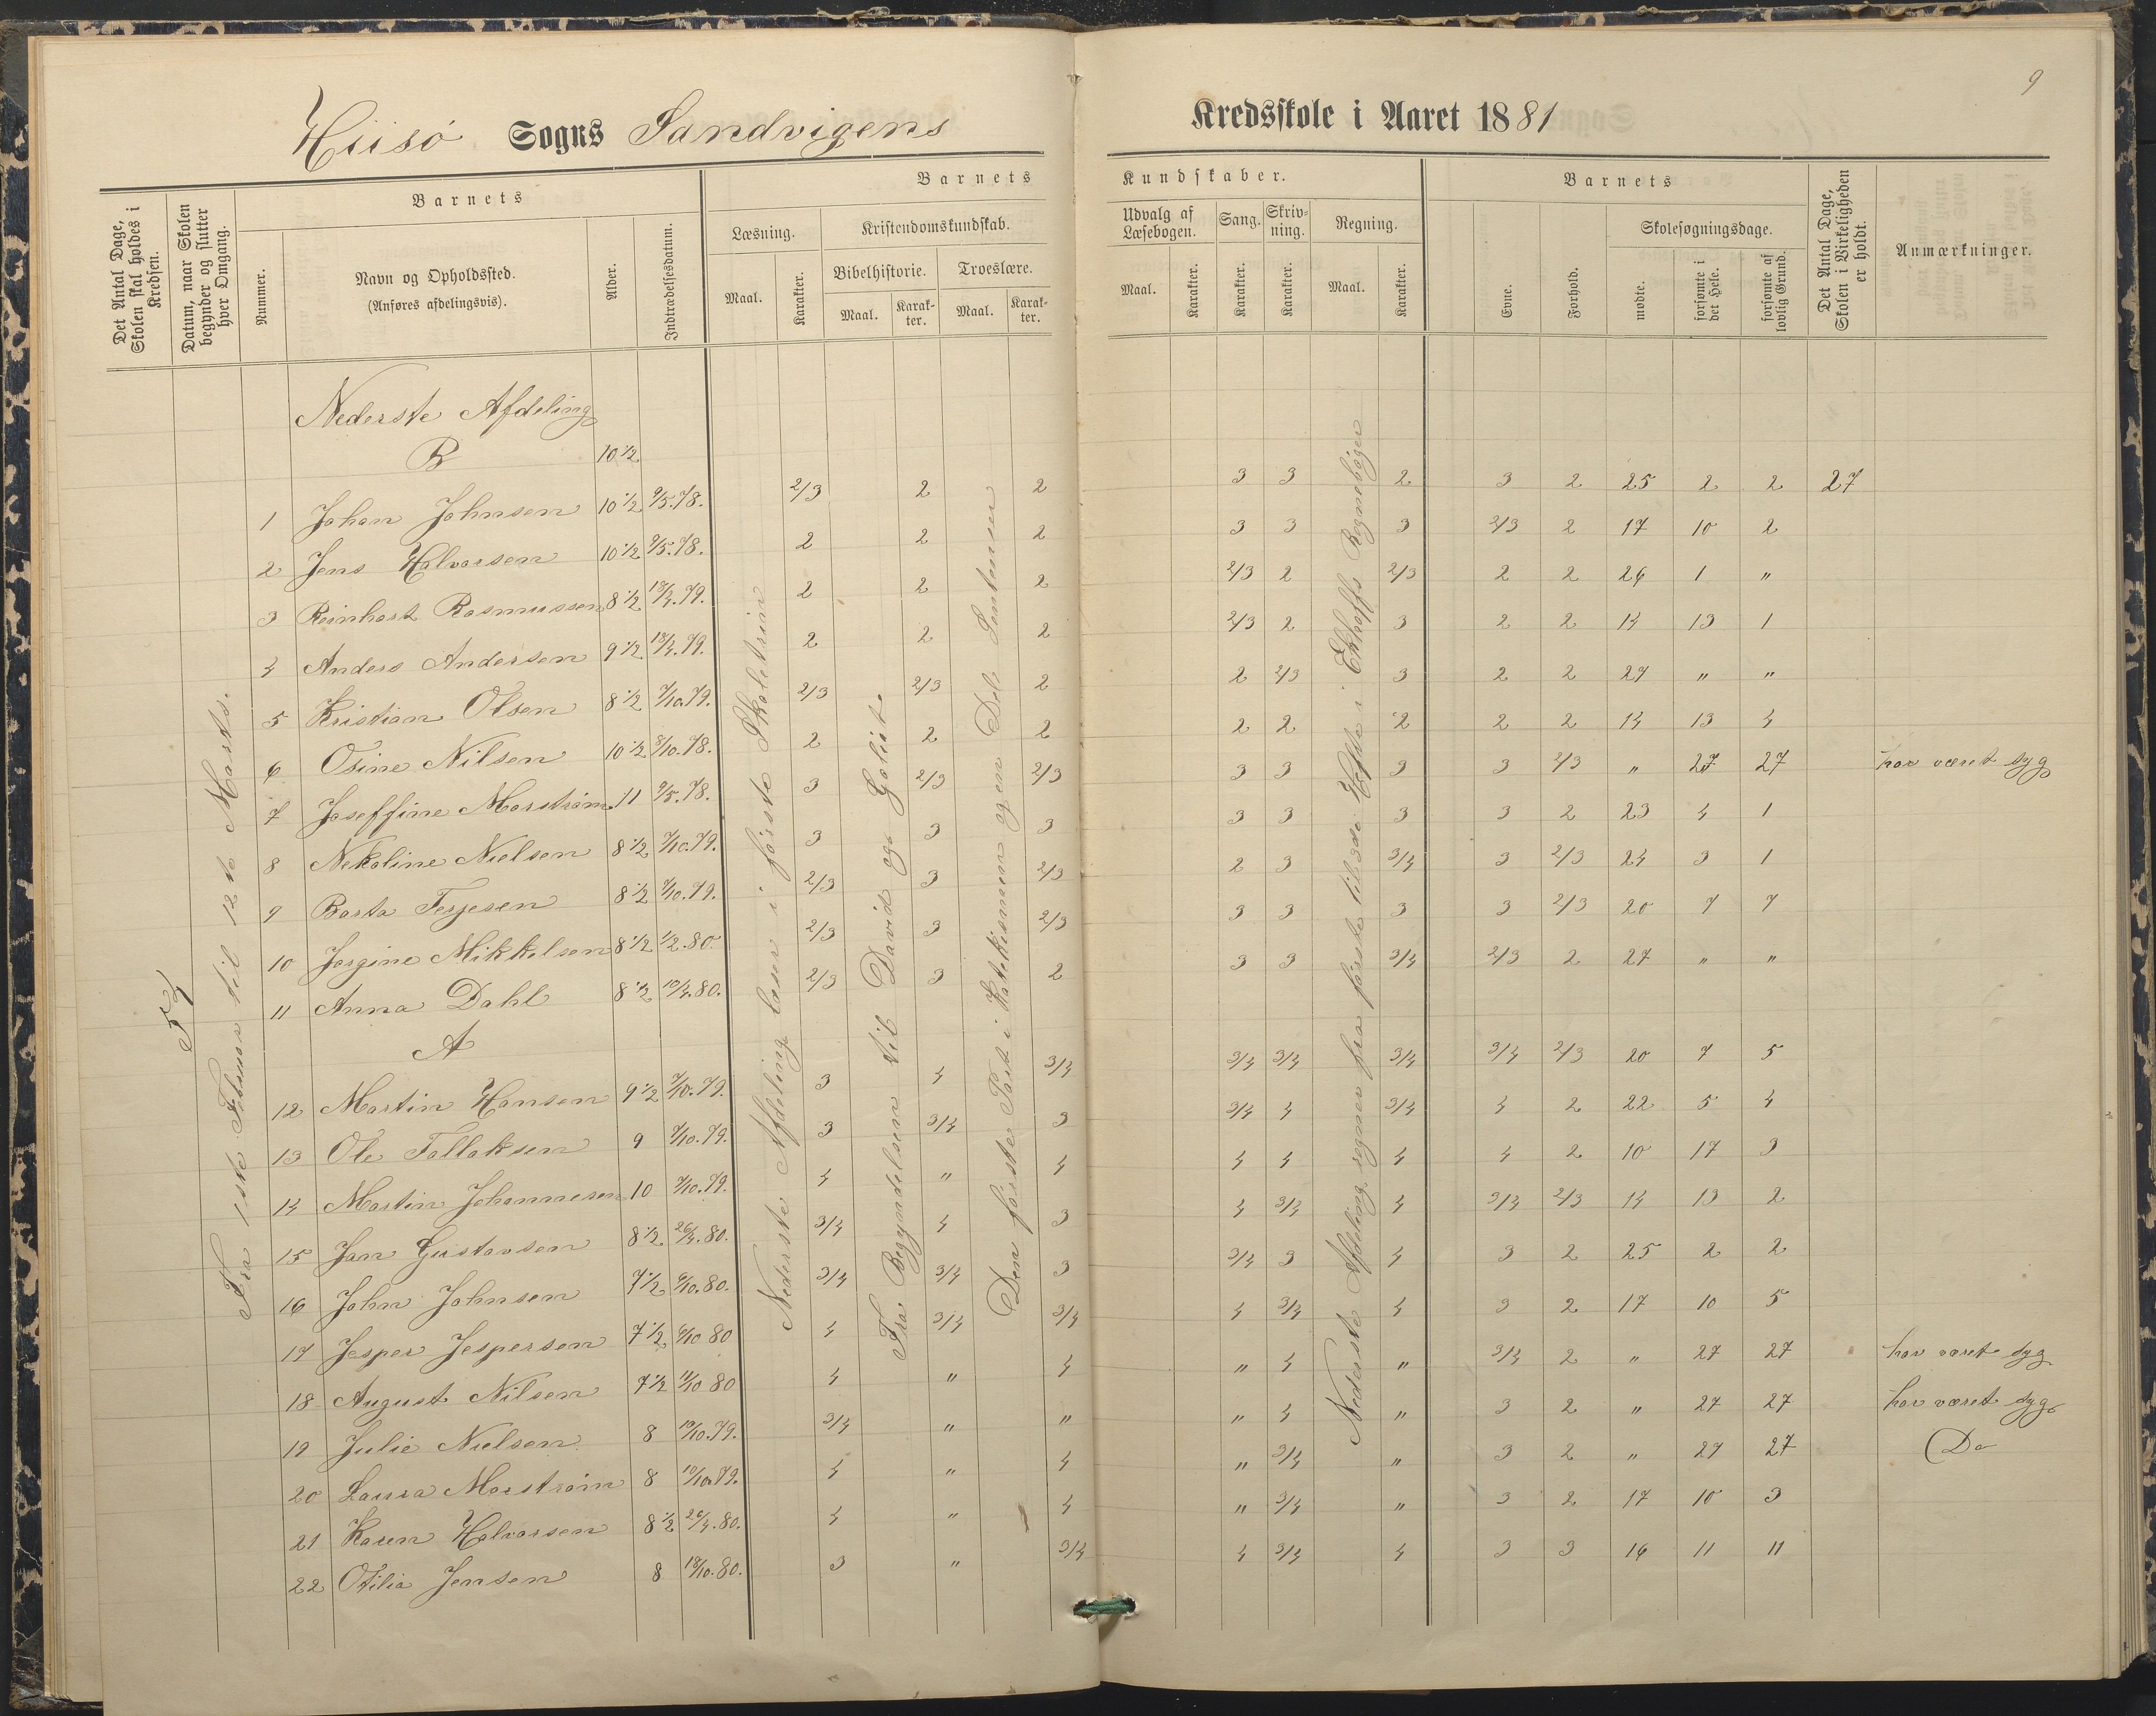 9
Hiisø Sogns Sandvigens Kredsskole i Aaret 1881
Det Antal Dage, Skolen skal holdes i Kredsen.
Datum, naar Skolen begynder og slutter hver Omgang.
Barnets
Nummer.
Navn og Opholdssted.
(Anføres afdelingsvis).
Alder.
Indtrædelsesdatum.
Barnets Kundskaber.
Læsning.
Maal. Karakter.
Kristendomskundskab.
Bibelhistorie. Troeslære.
Maal. Karakter. Maal. Karakter.
Udvalg af Læsebogen.
Maal. Karakter.
Sang. Karakter.
Skrivning. Karakter.
Regning.
Maal. Karakter.
Barnets
Evne. Forhold.
Skolesøgningsdage.
mødte. forsømte i det Hele. forsømte af lovlig Grund.
Det Antal Dage, Skolen i Virkeligheden er holdt.
Anmærkninger.
54
Fra 1ste Februar til 12te Marts.
Nederste Afdeling læser i første Skoletrin
Fra Begyndelsen til David og Goliat.
Den første Part i Katekismen og en Del Sentenser
Nederste Afdeling regner fra første til 3die Hefte i Ekhoffs Regnebøger
Nederste Afdeling
B 10 1/2
1 Johan Johnsen 10 1/2 9/5.78. 2/3 2 2 3 3 2 3 2 25 2 2 27
2 Jens Halvorsen 10 1/2 9/5.78. 2 2 2 3 3 3 2/3 2 17 10 2
3 Reinhart Rasmussen 8 1/2 18/4.79. 2 2 2 2/3 2 2/3 2 2 26 1 "
4 Anders Andersen 9 1/2 18/4.79. 2 2 2 2/3 2 3 2 2 14 13 1
5 Kristian Olsen 8 1/2 7/10.79. 2/3 2/3 2 2 2/3 3 2 2 27 " "
6 Osine Nilsen 10 1/2 8/10.78. 2 2 2 2 2 2 2 2 14 13 4
7 Joseffine Marstrøm 11 9/5.78. 3 2/3 2/3 3 3 3 3 2/3 " 27 27 har været syg
8 Nekoline Nielsen 8 1/2 7/10.79. 3 3 3 3 3 3 3 2 23 4 1
9 Barta Terjesen 8 1/2 7/10.79. 2/3 3 2/3 2 3 3/4 3 2/3 24 3 1
10 Jorgine Mikkelsen 8 1/2 1/2.80. 2/3 3 2/3 3 3 3 3 2/3 20 7 7
11 Anna Dahl 8 1/2 10/4.80. 2/3 3 2 3 3 3/4 2/3 2 27 " "
A
12 Martin Hansen 9 1/2 7/10.79. 3 4 3/4 3/4 3/4 3/4 3/4 2/3 20 7 5
13 Ole Tallaksen 9 7/10.79. 3 3/4 3 3/4 4 3/4 4 2 22 5 4
14 Martin Johannesen 10 7/10.79. 4 " 4 4 4 4 4 2 10 17 3
15 Jan Gustavsen 8 1/2 26/4.80. 3/4 4 3 4 3/4 4 3/4 2/3 14 13 2
16 John Johnsen 7 1/2 6/10.80. 3/4 3/4 3 3/4 3 4 3 2 25 2 2
17 Jesper Jespersen 7 1/2 6/10 80 4 3/4 3/4 4 3/4 4 3 2 17 10 5
18 August Nilsen 7 1/2 11/10 80 4 " 4 " 4 " 3/4 2 " 27 27 har været syg
19 Julie Nielsen 8 10/10.79. 3/4 " " " 4 " 3 2 " 27 27 har været syg
20 Laura Marstrøm 8 10/10.79. 4 " 4 " 3/4 " 3 2 " 27 27 Do
21 Karen Halvorsen 8 1/2 26/4.80. 4 " 4 " 3/4 " 3 2 17 10 3
22 Otilia Jensen 8 18/10.80. 3 " 3/4 4 3/4 4 3 3 16 11 11